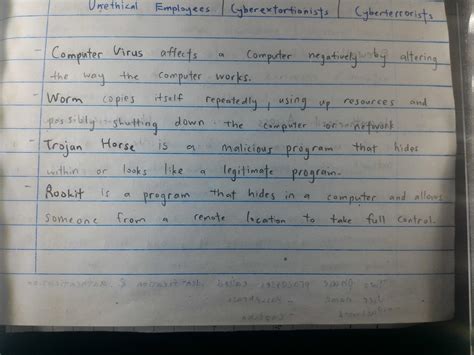 Unethical Employees | Cyberextortionists | Cyberterrorists
- Computer Virus affects a computer negatively by altering
the way the computer works.
- Worm copies itself repeatedly, using up resources and
possibly shutting down the computer or network
- Trojan Horse is a malicious program that hides
within or looks like a legitimate program.
- Rookit is a program that hides in a computer and allows
someone from a remote location to take full control.